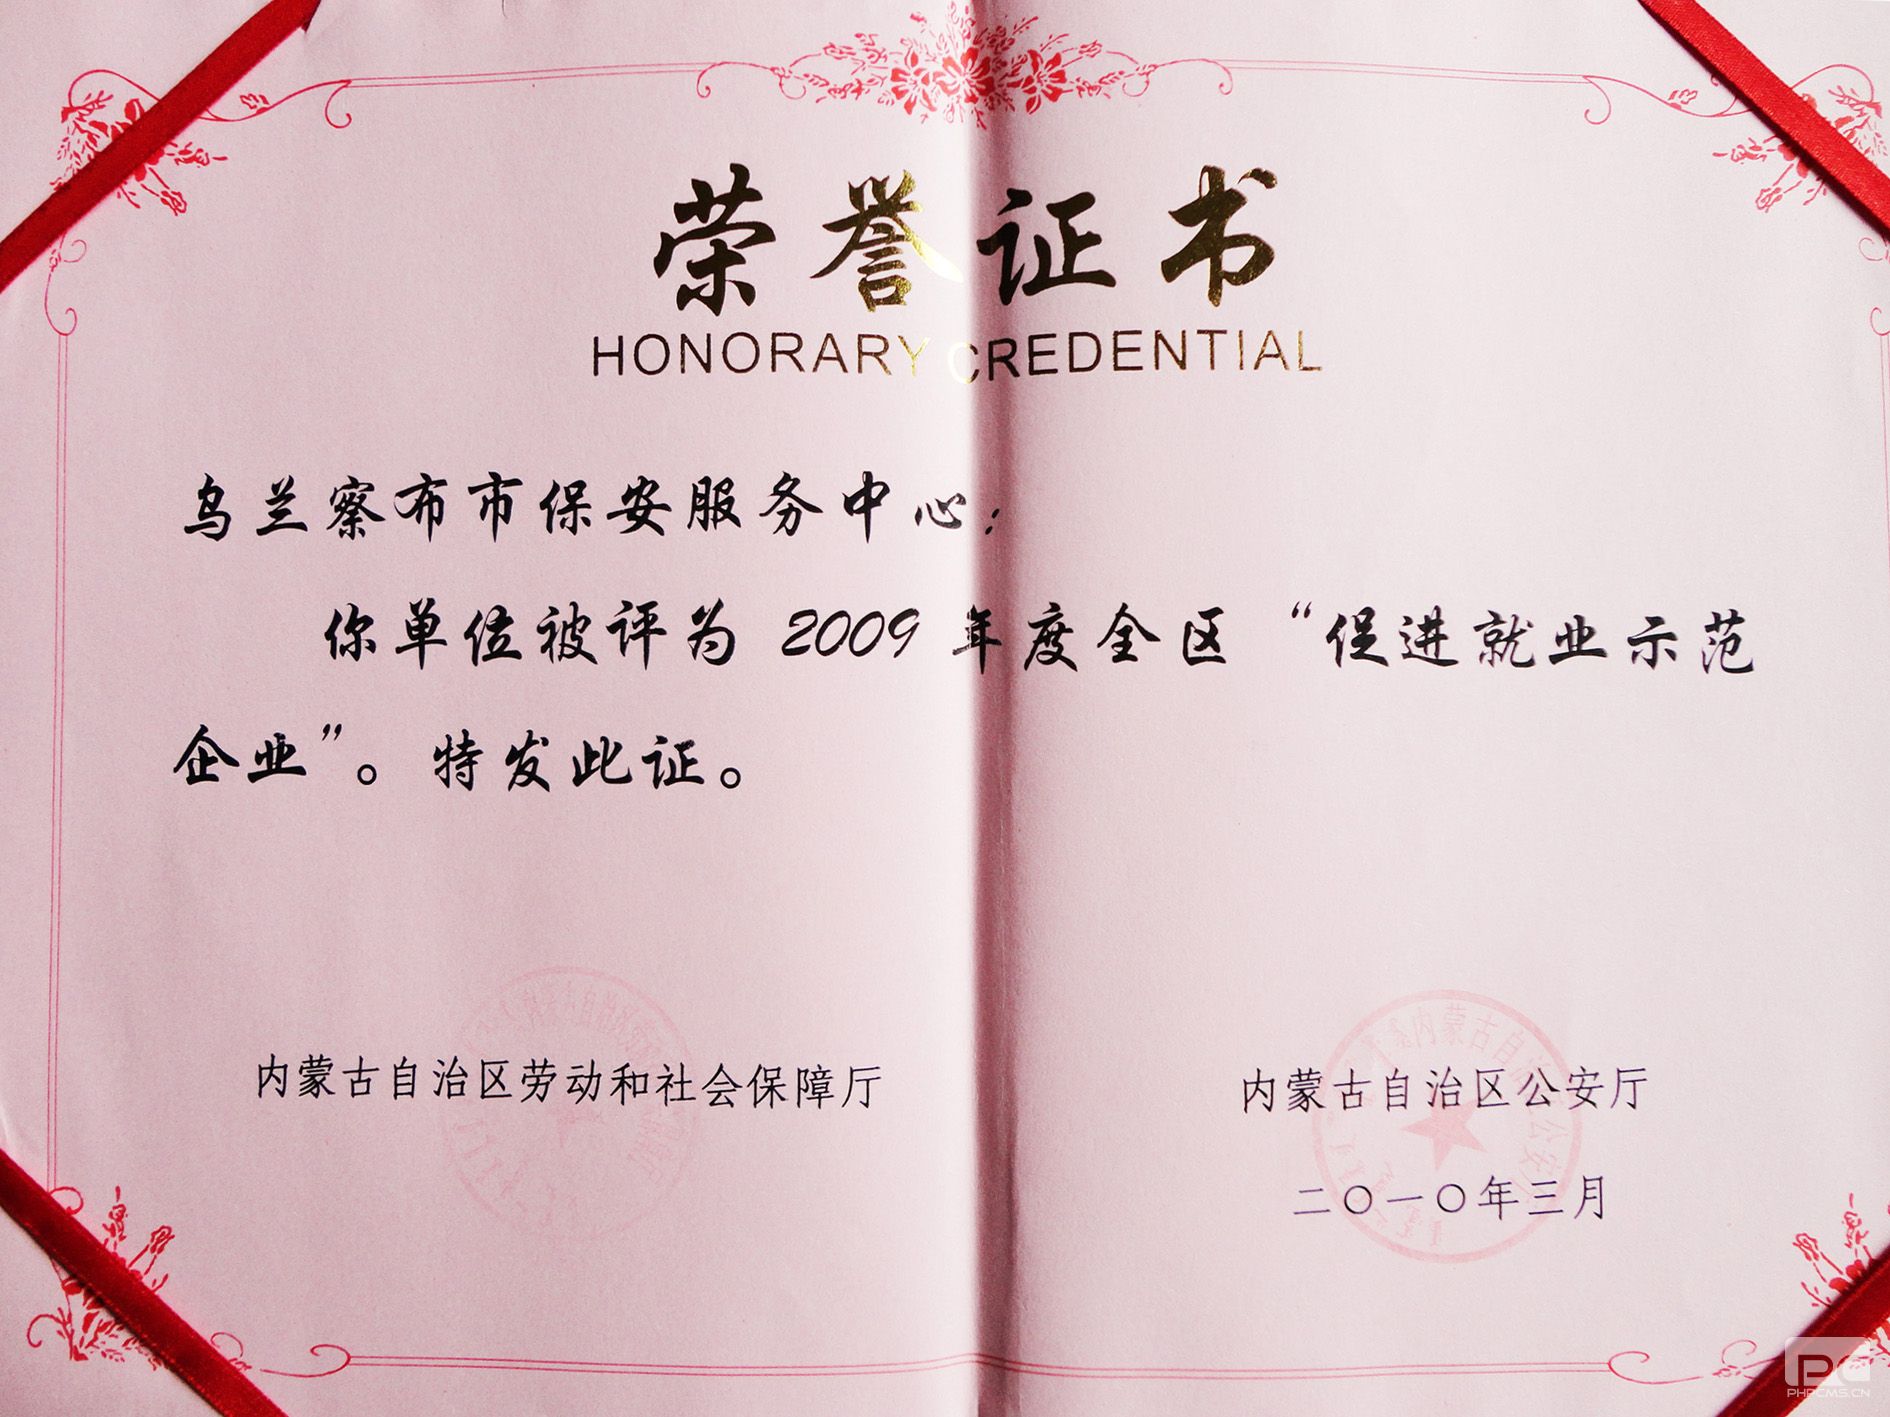 荣誉证书
HONORARY CREDENTIAL
乌兰察布市保安服务中心：
你单位被评为 2009 年度全区“促进就业示范
企业”。特发此证。
内蒙古自治区劳动和社会保障厅
内蒙古自治区公安厅
二〇一〇年三月
PHPCMS.CN